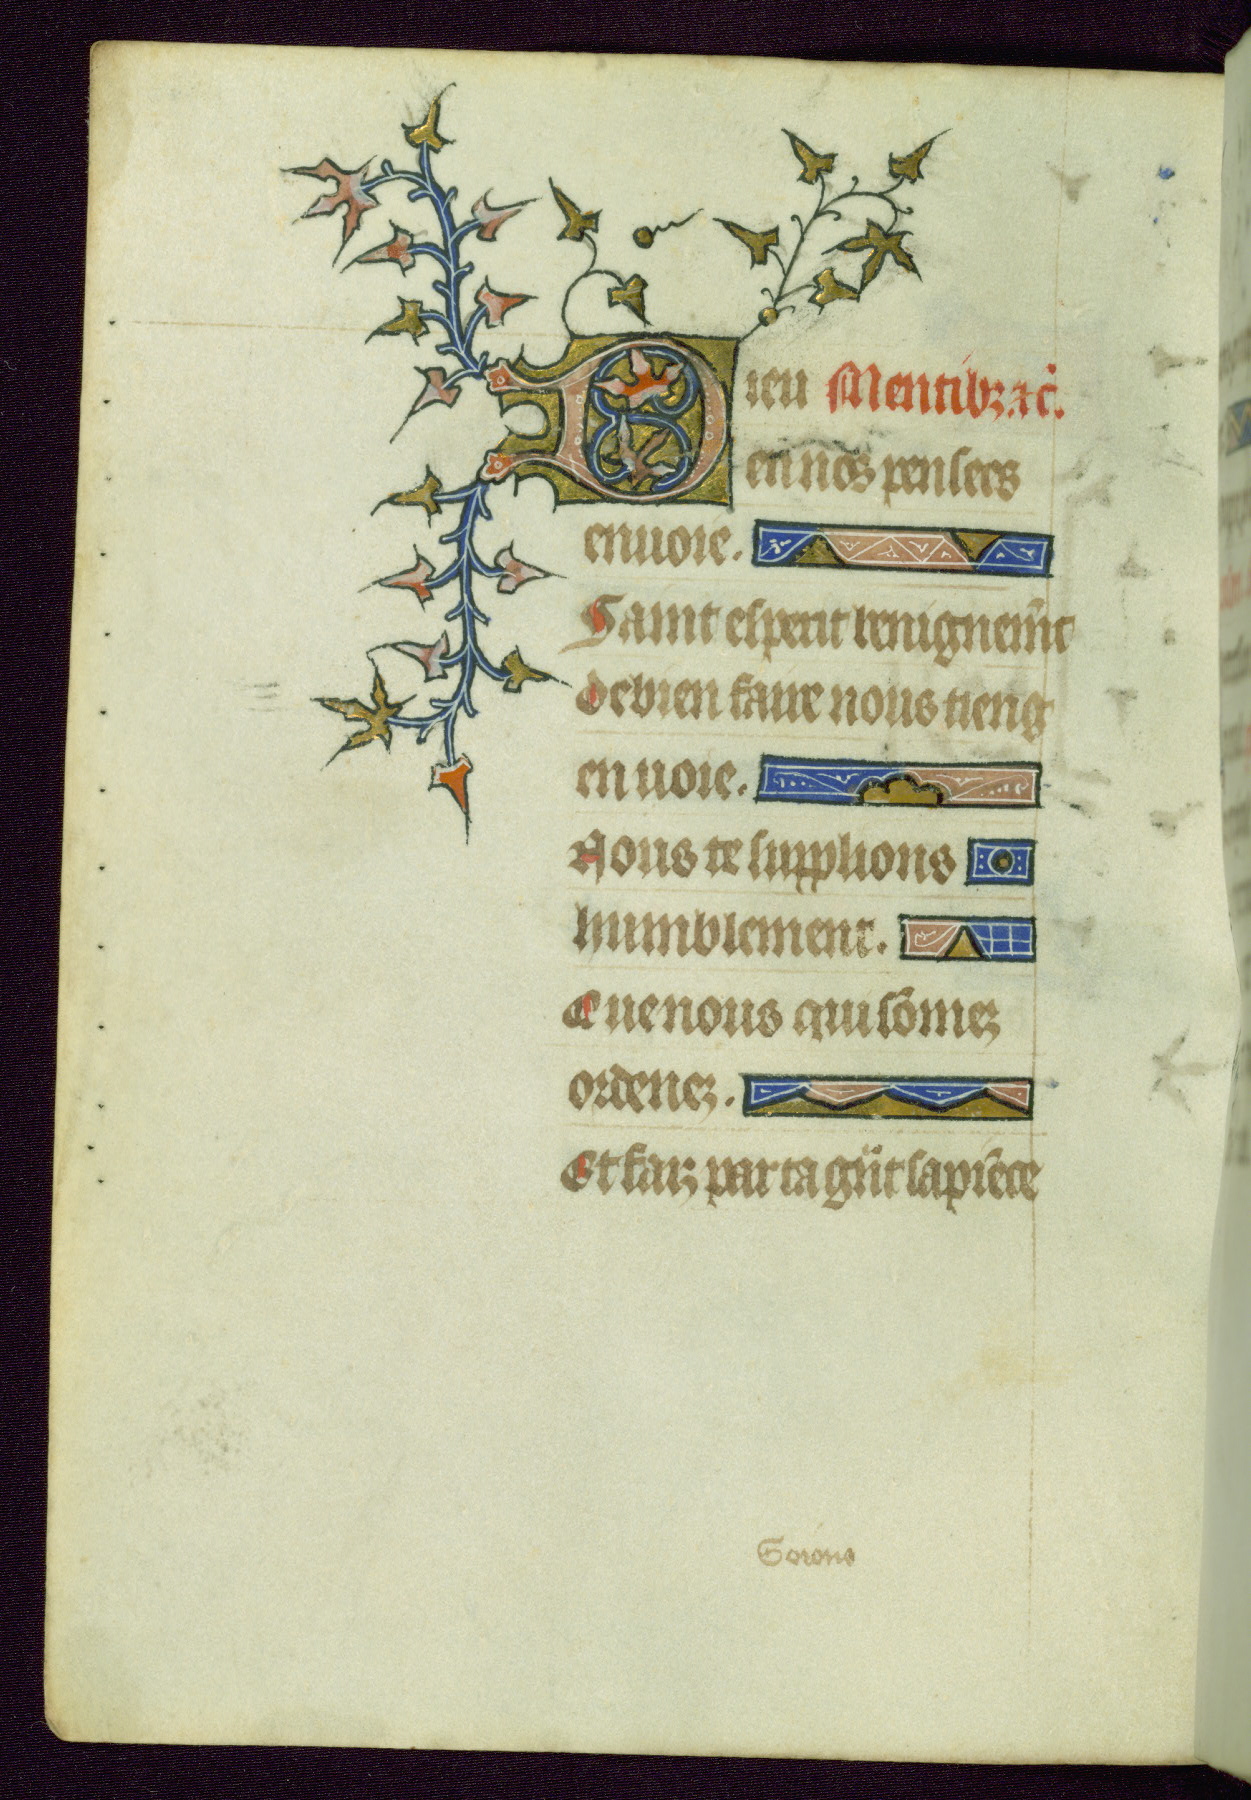 Dieu Mentibꝫ ⁊c̃.
en nos pensees
enuoie.
Saint esperit benignem̃t
de bien faire nous tieng
en uoie.
Nous te supplions
humblement.
Que nous qui sõmeꝫ
ordeneꝫ.
Et faiꝫ par ta g̃nt sapiẽce
Soions